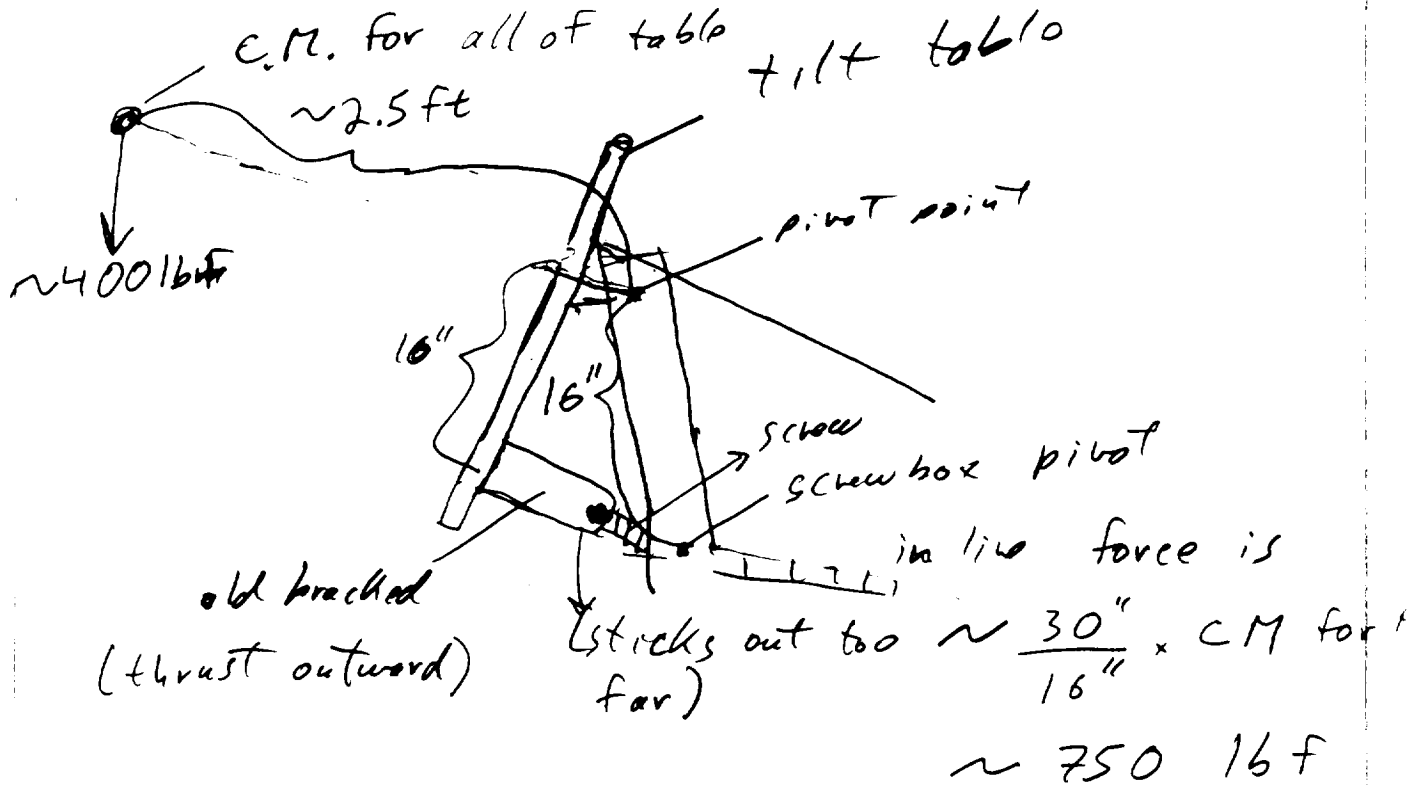 C.M. for all of table
~2.5 ft
tilt table
pivot point
~400 lbf
16"
16"
screw
screwbox pivot
old bracked
(thrust outward)
(sticks out too
far)
in line force is
~ 30" / 16" × CM for
~ 750 lbf